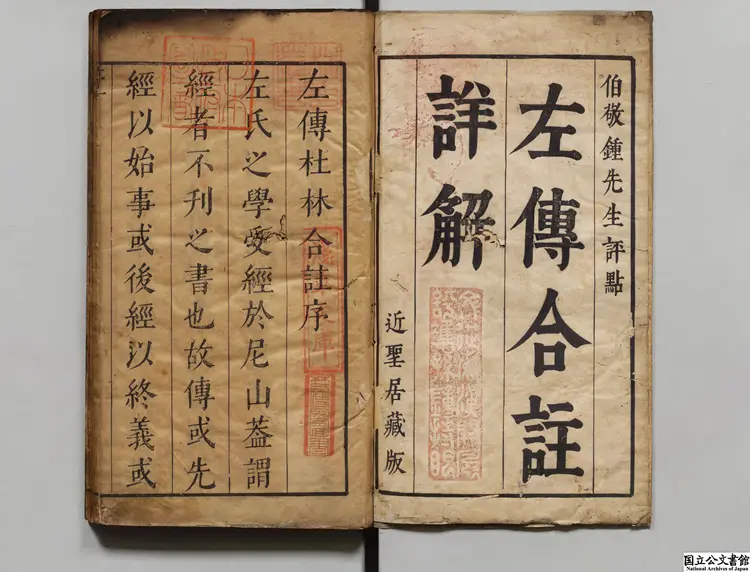 伯敬鍾先生評點
左傳合註
詳解
近聖居藏版
左傳杜林合註序
左氏之學受經於尼山葢謂
經者不刊之書也故傳或先
經以始事或後經以終義或
国立公文書館
National Archives of Japan